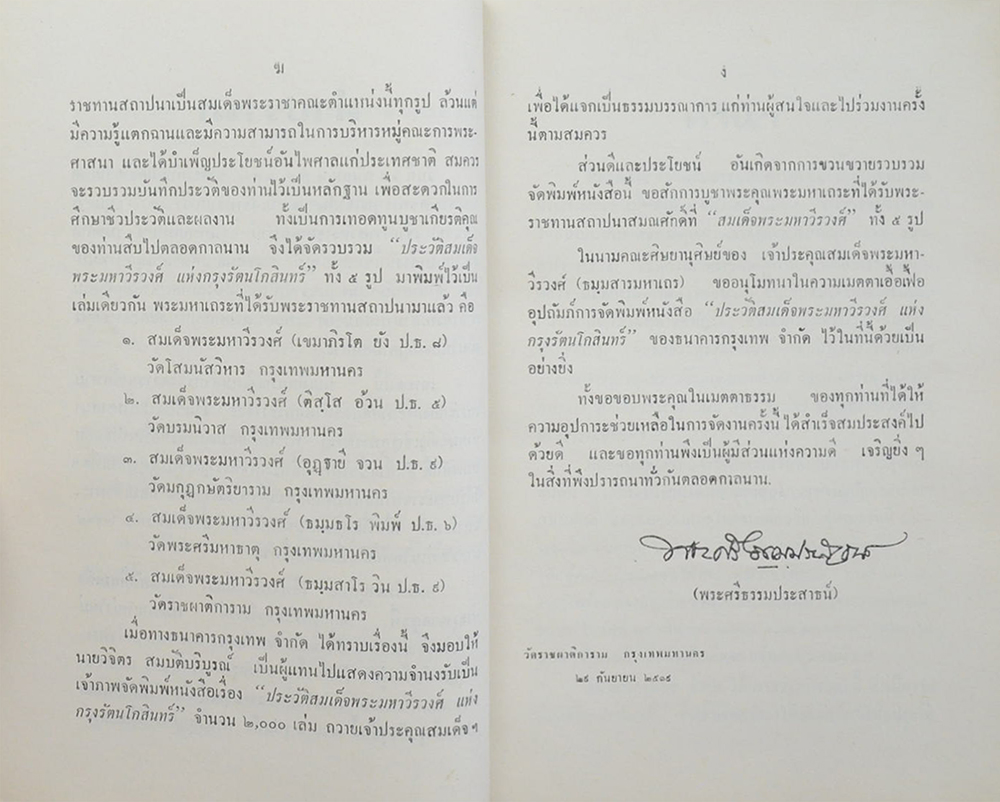 ฆ
ราชทานสถาปนาเป็นสมเด็จพระราชาคณะตำแหน่งนี้ทุกรูป ล้วนแต่
มีความรู้แตกฉานและมีความสามารถในการบริหารหมู่คณะการพระ-
ศาสนา และได้บำเพ็ญประโยชน์อันไพศาลแก่ประเทศชาติ สมควร
จะรวบรวมบันทึกประวัติของท่านไว้เป็นหลักฐาน เพื่อสะดวกในการ
ศึกษาชีวประวัติและผลงาน ทั้งเป็นการเทอดทูนบูชาเกียรติคุณ
ของท่านสืบไปตลอดกาลนาน จึงได้จัดรวบรวม “ประวัติสมเด็จ
พระมหาวีรวงศ์ แห่งกรุงรัตนโกสินทร์” ทั้ง ๕ รูป มาพิมพ์ไว้เป็น
เล่มเดียวกัน พระมหาเถระที่ได้รับพระราชทานสถาปนามาแล้ว คือ
๑. สมเด็จพระมหาวีรวงศ์ (เขมาภิรโต ยัง ป.ธ. ๘)
วัดโสมนัสวิหาร กรุงเทพมหานคร
๒. สมเด็จพระมหาวีรวงศ์ (ติสฺโส อ้วน ป.ธ. ๕)
วัดบรมนิวาส กรุงเทพมหานคร
๓. สมเด็จพระมหาวีรวงศ์ (อุฏฺฐายี จวน ป.ธ. ๙)
วัดมกุฏกษัตริยาราม กรุงเทพมหานคร
๔. สมเด็จพระมหาวีรวงศ์ (ธมฺมธโร พิมพ์ ป.ธ. ๖)
วัดพระศรีมหาธาตุ กรุงเทพมหานคร
๕. สมเด็จพระมหาวีรวงศ์ (ธมฺมสาโร วิน ป.ธ. ๙)
วัดราชผาติการาม กรุงเทพมหานคร
เมื่อทางธนาคารกรุงเทพ จำกัด ได้ทราบเรื่องนี้ จึงมอบให้
นายวิจิตร สมบัติบริบูรณ์ เป็นผู้แทนไปแสดงความจำนงรับเป็น
เจ้าภาพจัดพิมพ์หนังสือเรื่อง “ประวัติสมเด็จพระมหาวีรวงศ์ แห่ง
กรุงรัตนโกสินทร์” จำนวน ๒,๐๐๐ เล่ม ถวายเจ้าประคุณสมเด็จฯ
ง
เพื่อได้แจกเป็นธรรมบรรณาการ แก่ท่านผู้สนใจและไปร่วมงานครั้ง
นี้ตามสมควร
ส่วนดีและประโยชน์ อันเกิดจากการขวนขวายรวบรวม
จัดพิมพ์หนังสือนี้ ขอสักการบูชาพระคุณพระมหาเถระที่ได้รับพระ-
ราชทานสถาปนาสมณศักดิ์ที่ “สมเด็จพระมหาวีรวงศ์” ทั้ง ๕ รูป
ในนามคณะศิษยานุศิษย์ของ เจ้าประคุณสมเด็จพระมหา-
วีรวงศ์ (ธมฺมสารมหาเถร) ขออนุโมทนาในความเมตตาเอื้อเฟื้อ
อุปถัมภ์การจัดพิมพ์หนังสือ “ประวัติสมเด็จพระมหาวีรวงศ์ แห่ง
กรุงรัตนโกสินทร์” ของธนาคารกรุงเทพ จำกัด ไว้ในที่นี้ด้วยเป็น
อย่างยิ่ง
ทั้งขอขอบพระคุณในเมตตาธรรม ของทุกท่านที่ได้ให้
ความอุปการะช่วยเหลือในการจัดงานครั้งนี้ ได้สำเร็จสมประสงค์ไป
ด้วยดี และขอทุกท่านพึงเป็นผู้มีส่วนแห่งความดี เจริญยิ่ง ๆ
ในสิ่งที่พึงปรารถนาทั่วกันตลอดกาลนาน.
พระศรีธรรมประสาธน์
(พระศรีธรรมประสาธน์)
วัดราชผาติการาม กรุงเทพมหานคร
๒๙ กันยายน ๒๕๑๙